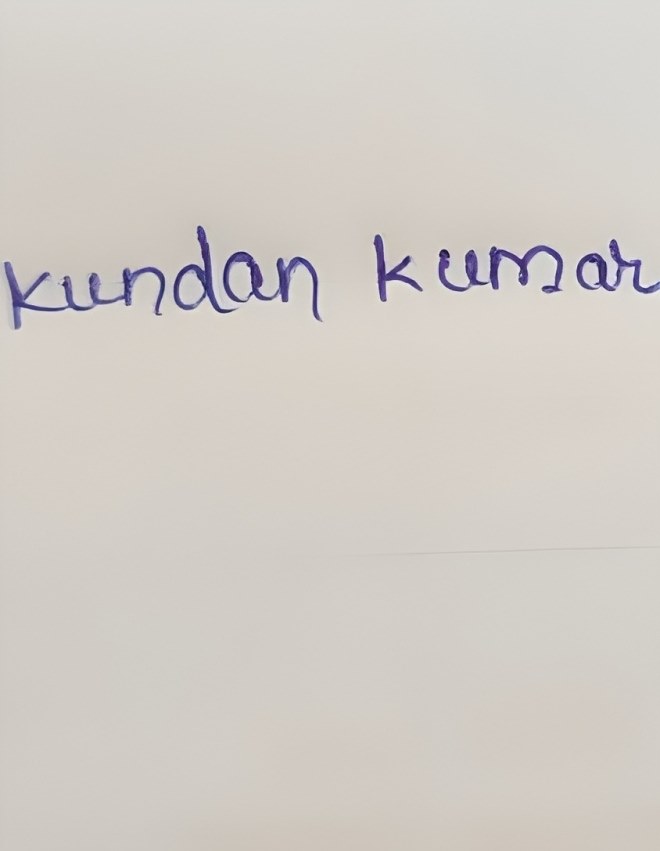 kundan kumar